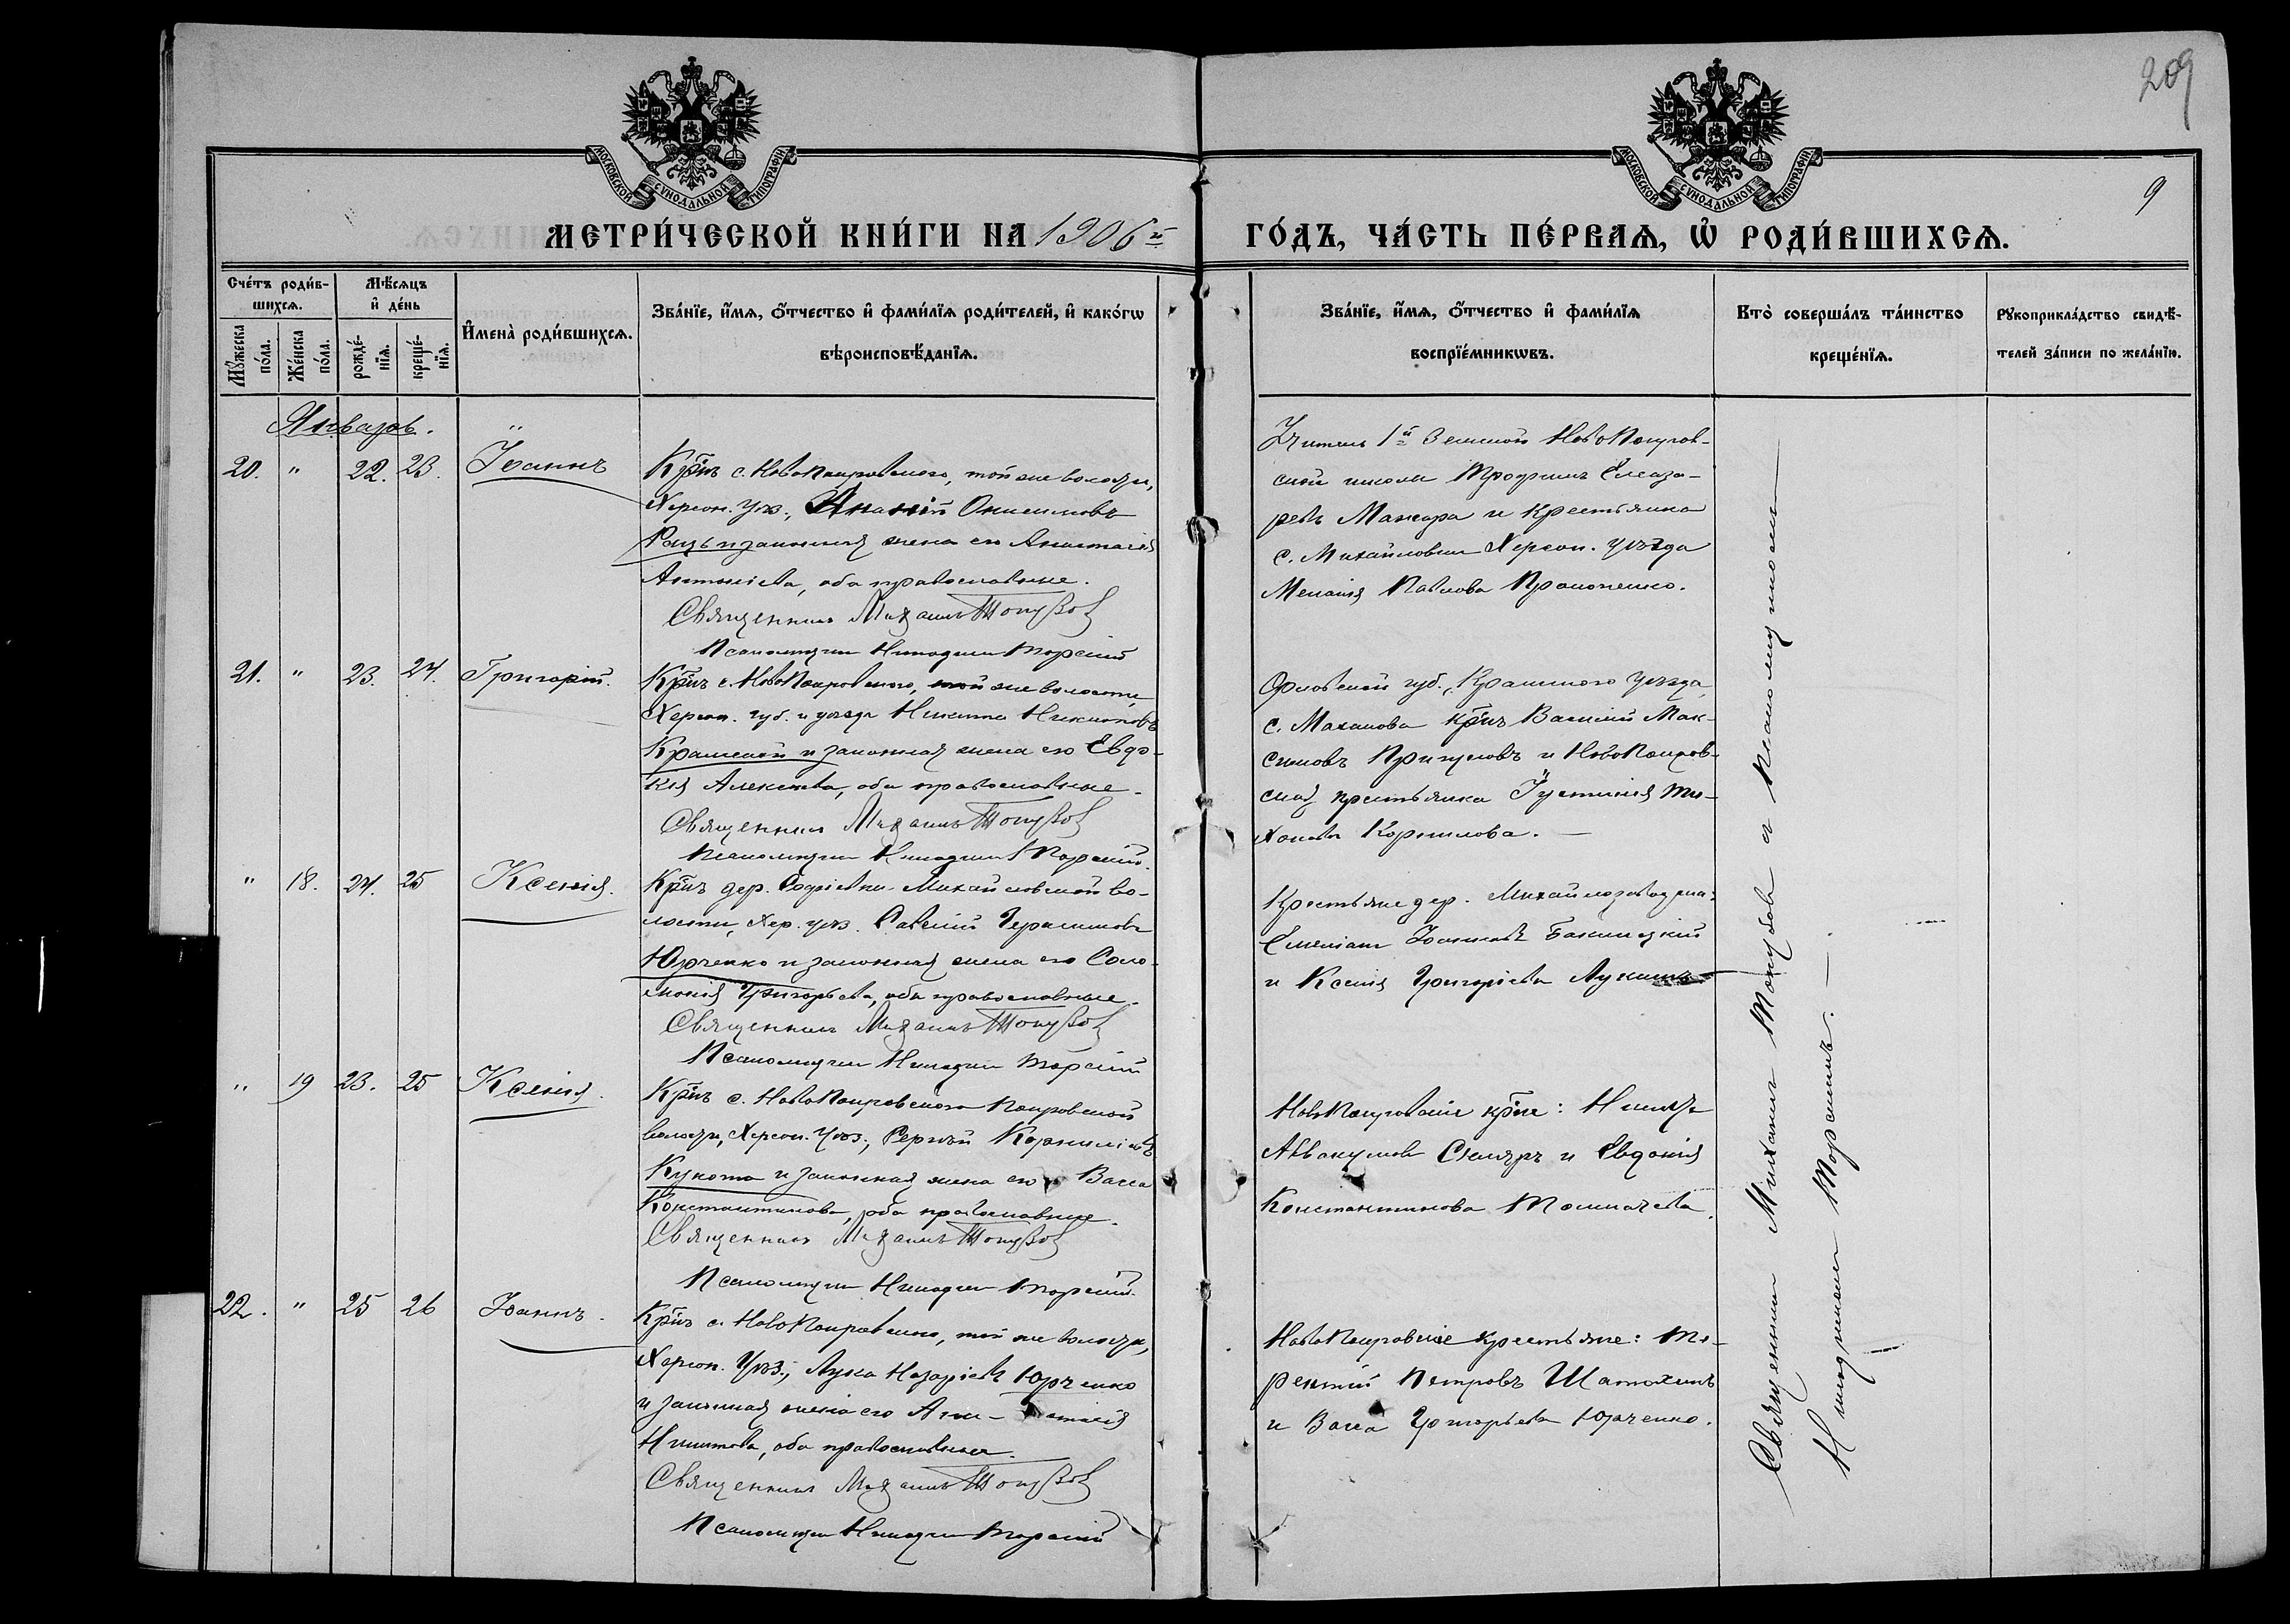 209
9
МОСКОВСКОЙ СѴНОДАЛЬНОЙ ТИПОГРАФІИ
МОСКОВСКОЙ СѴНОДАЛЬНОЙ ТИПОГРАФІИ
МЕТРИ́ЧЕСКОЙ КНИ́ГИ НА 1906й ГО́ДЪ, ЧА́СТЬ ПЕ́РВАѦ, Ѡ҆ РОДИ́ВШИХСѦ.
Сче́тъ роди́в-
шихсѧ.
Мꙋ́жеска по́ла.
Же́нска по́ла.
Мѣ́сѧцъ
и҆ де́нь
рожде́-
нїѧ.
креще́-
нїѧ.
И҆мена̀ роди́вшихсѧ.
Зва́нїе, и҆́мѧ, ѻ҆́тчество и҆ фами́лїѧ роди́телей, и҆ како́гѡ
вѣроисповѣ́данїѧ.
Зва́нїе, и҆́мѧ, ѻ҆́тчество и҆ фами́лїѧ
воспрїе́мникѡвъ.
Кто̀ соверша́лъ та́инство
креще́нїѧ.
Рꙋкоприкла́дство свидѣ́-
телей за́писи по жела́нїю.
Январь.
20. " 22. 23. Іоаннъ
Кр-нъ с. НовоПокровскаго, той же волости,
Херсон. уѣз., Ананій Онисимовъ
и законная жена его Анастасія
Антоніева, оба православные.
Священникъ Михаилъ
Псаломщикъ Никодим Торскій
Учитель 1й Земской НовоПокров-
ской школы Трофимъ Елеаза-
ревъ и крестьянка
с. Михайловки Херсон. уѣзда
Меланія Павлова
21. " 23. 24. Григорій.
Кр-нъ с. НовоПокровскаго, той же волости,
Херсон. губ. и уѣзда Никита
и законная жена его Евдо-
кія Алексѣева, оба православные.
Священникъ Михаилъ
Псаломщикъ Никодим Торскій.
Орловской губ., уѣзда,
с. кр-нъ Василій Мак-
симовъ и НовоПокров-
ская крестьянка Іустинія Ти-
хонова Корнилова.
" 18. 24. 25 Ксенія.
Кр-нъ дер. Софіевки Михайловской во-
лости, Хер. уѣз. Савелій Герасимовъ
Юрченко и законная жена его Соло-
монія Григорьева, оба православные.
Священникъ Михаилъ
Псаломщикъ Никодим Торскій
Крестьяне дер.
Емеліанъ Іоанновъ
и Ксенія Григоріева
" 19 23. 25 Ксенія.
Кр-нъ с. НовоПокровскаго Покровской
волости, Херсон. уѣз., Сергѣй Корниліевъ
Кукота и законная жена его Васса
Константинова, оба православные.
Священникъ Михаилъ
Псаломщикъ Никодим Торскій.
НовоПокровскіе кр-не: Никита
Аввакумовъ Скляръ и Евдокія
Константинова Толмачева.
22. " 25 26 Іоаннъ.
Кр-нъ с. НовоПокровскаго, той же волости,
Херсон. уѣз., Лука Назаріевъ Юрченко
и законная жена его Ана-стасія
Никитова, оба православные.
Священникъ Михаилъ
Псаломщикъ Никодим Торскій
НовоПокровскіе крестьяне: Те-
рентій Петровъ Шатохинъ
и Васса Григорьева Юрченко.
Священникъ Михаилъ съ псаломщикомъ
Никодимомъ Торскимъ.